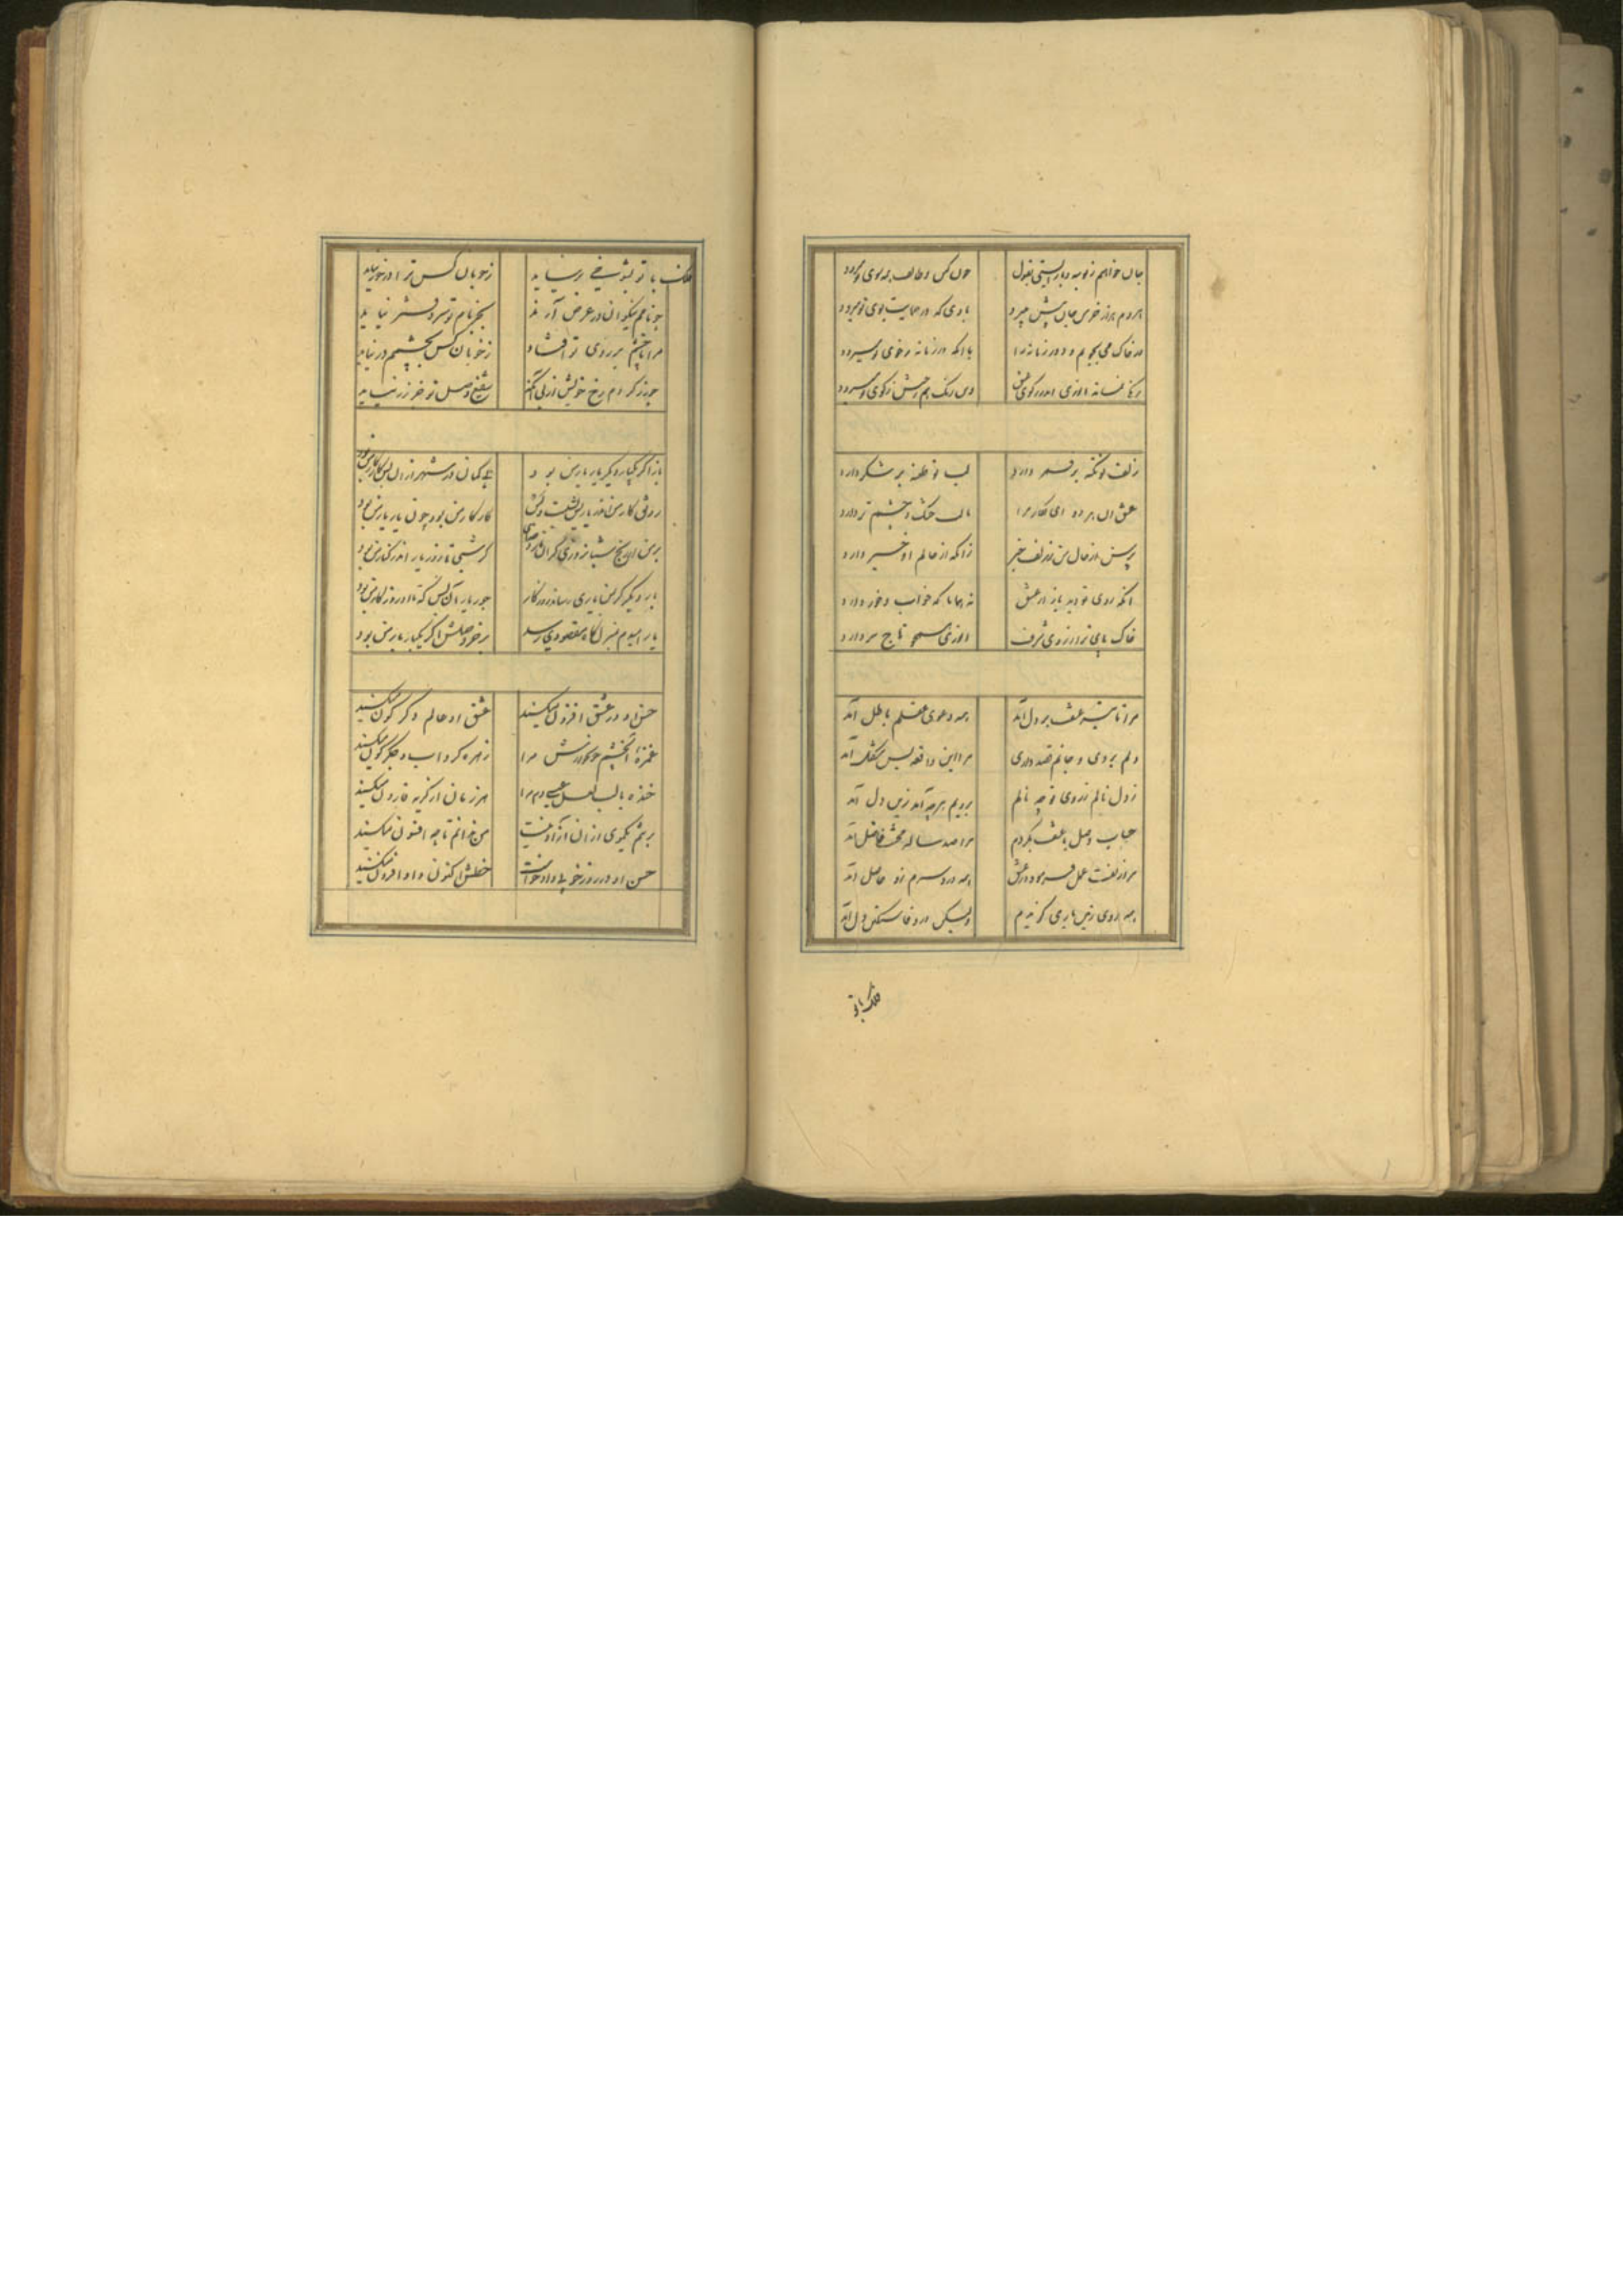 جان خواهم ز بوسه و بار نیستی بقول چون کس وظایف همه سوی تو میرود
هر دم هزار خوش جان پیش میرود بادی که در حمایت بوی تو میرود
در خاک می بجویم و در زمانه با آنکه در زمانه ز خوی تو میرود
انوری اندر کوی رنگ هم ز کوی تو میرود
زلف تو تکیه بر قمر دارد لب تو طعنه بر شکر دارد
عشق این هر دو ای نگار مرا با لب خشک و چشم تر دارد
پرس از حال من ز زلف خبر زانکه از حالم او خبر دارد
انکه روی تو دید باز از عشق نه همانا که خواب و خور دارد
خاک پای ترا ز روی شرف انوری همچو تاج سر دارد
مرا تاثیر عشقت بر دل آمد همه دعوی عقلم باطل آمد
دلم بردی و جانم قصد داری مرا این واقعه بس مشکل آمد
ز دل نالم نه روی تو چه نالم برویم هر چه آمد زین دل آمد
حساب وصل با عشقت بکردم مرا صد ساله محنت فاضل آمد
مرا زلفت عمل فرمود در عشق همه درد سرم زو حاصل آمد
همه روی زمین یاری گزیدم ولیکن در وفا سنگین دل آمد
فلک با تو
فلک با تو بشوخی بر نیاید ز خوبان کس ترا در خور نیاید
چو نام نیکوان در عرض آرند بجز نام تو سر دفتر نیاید
مرا تا چشم بر روی تو افتاد ز خوبان کس بچشمم در نیاید
چو زر کردم رخ خویش از پی آنک شفیع وصل تو جز زر نیاید
باز اگر یکباره دیگر یار یار من بود بی گمان در شهر ازان پس کار کار من بود
رونق کار من اندر یاریش کار کار من بود چون یار یار من بود
بر من این رنج شبانروزی گر شبی تا روز یار اندر کنار من بود
بار دیگر گر بمن یاری رساند روزگار جور یار آن بس که با او روزگار من بود
یار امیدم بمنزلگاه مقصودی رسد بر خر وصلش اگر یکبار بار من بود
حسن او در عشق افزون میکند عشق او حالم دگرگون میکند
غمزه از چشم خونخوارش مرا زهره کرد آب و جگر خون میکند
خنده با لب لعلش همی دم مرا هر زمان از گریه قارون میکند
برنتم یکموی ازان آزاد نیست من ندانم تا چه افسون میکند
حسن او در روز خوبی داد خواست خطش اکنون داد افزون میکند